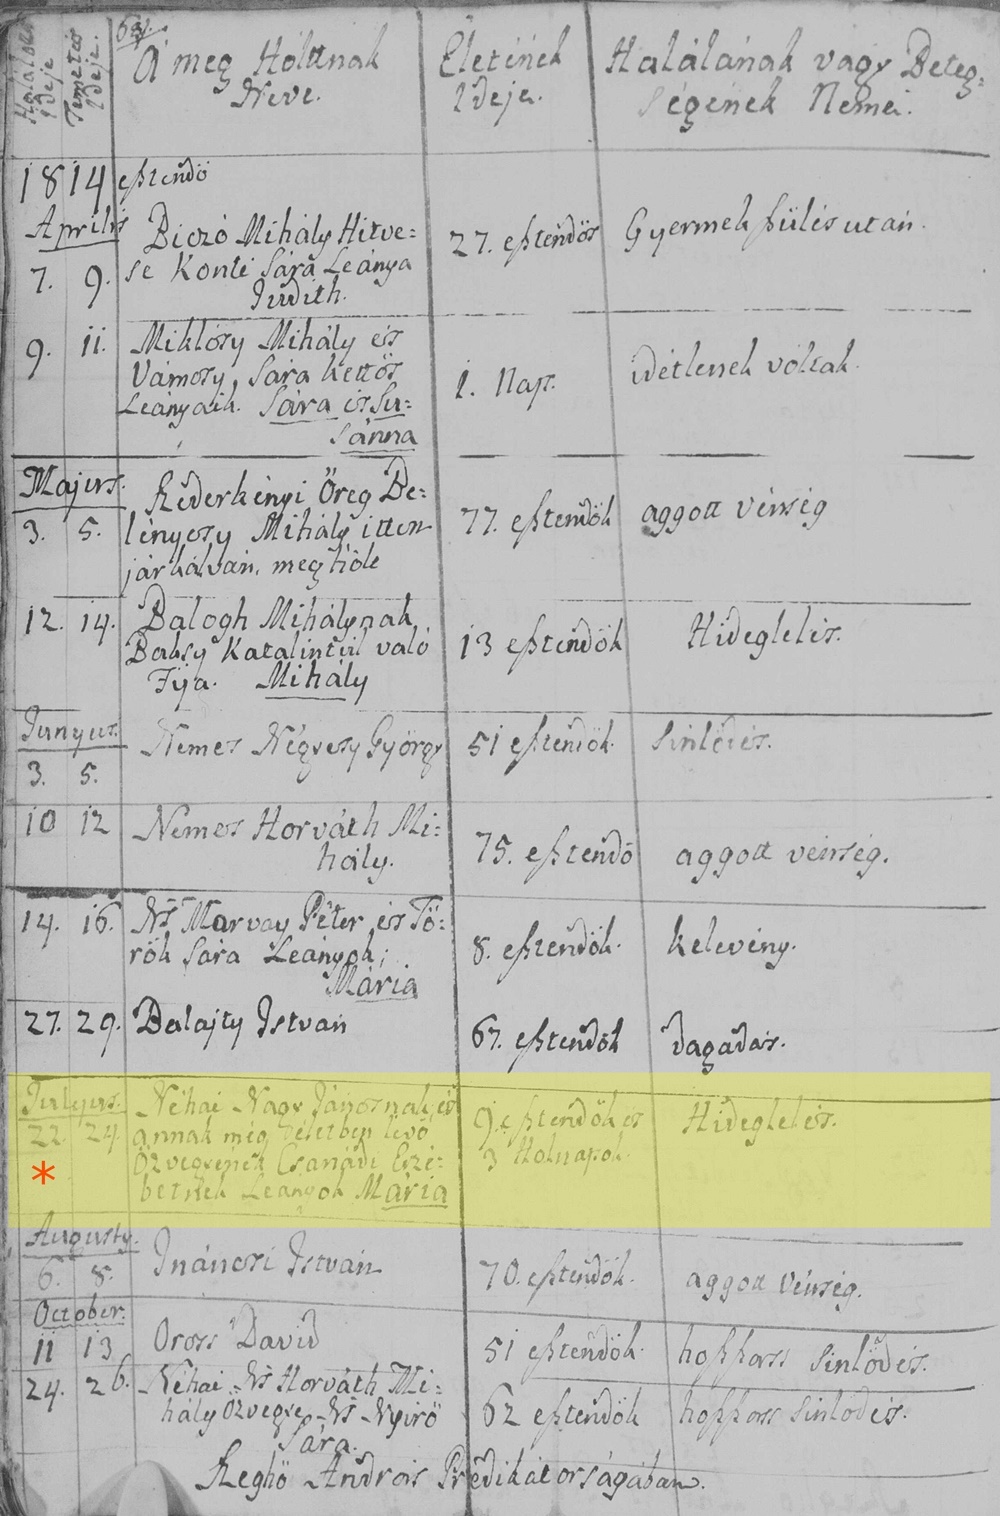 63.
Halálozás Ideje
Temetés Ideje.
A meg Hóltnak Neve.
Életének Ideje.
Halálának vagy Beteg=
ségének Nemei.
1814 esztendö
Aprilis
7. 9. Biczó Mihály Hitve=
se Konti Sára Leánya
Judith.
27. esztendös
Gyermek szülés után.
9. 11. Miklósy Mihály és
Vámosy Sára kettös
Leányaik. Sára és Su=
sánna
1. Nap.
idétlenek vóltak.
Majus.
3. 5. Kéderkényi Öreg Be=
lényesy Mihály itten
járkálván, meghóle
77. esztendök
aggott vénség
12. 14. Balogh Mihálynak
Baksy Katalintúl való
Fija. Mihály
13 esztendök
Hideglelés.
Junyus.
3. 5. Nemes Négyesy György
51 esztendök.
Sinlödés.
10 12 Nemes Horváth Mi=
hály.
75. esztendö
aggott vénség.
14. 16. Ns Marvay Péter és Tö=
rök Sára Leányok;
Mária
8. esztendök.
kelevény.
27. 29. Balajty István
67. esztendök
dagadás.
Julyus.
22. 24. Néhai Nagy Jánosnak, és
annak még életben lévö
Özvegyének Csanádi Ersé=
betnek Leányok Mária
9. esztendök és
3 Holnapok.
Hideglelés.
*
Augusty.
6. 8. Ináncsi István
70. esztendök.
aggott Vénség.
October.
11 13 Oross David
51 esztendök.
hosszass Sinlödés.
24. 26. Néhai Ns Horváth Mi=
hály Özvegye Ns Nyirö
Sára.
62 esztendök
hosszass Sinlödés.
Reghö András Prédikátorságában.